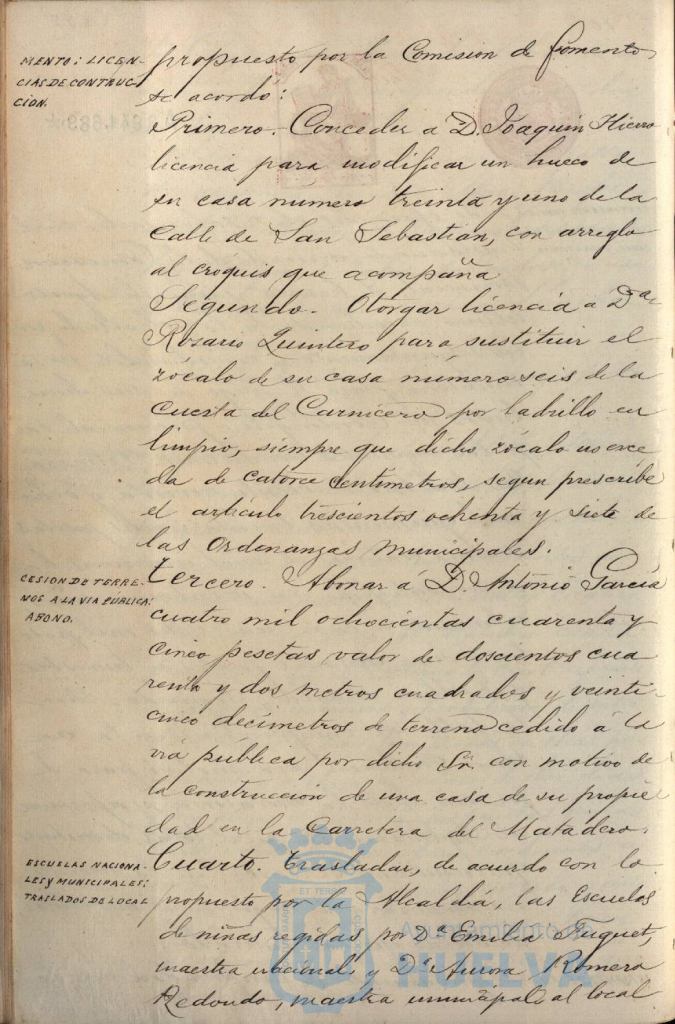 MENTO: LICEN-
CIAS DE CONTRUC-
CIÓN.
propuesto por la Comisión de fomento,
se acordó:
Primero. Conceder á D. Joaquín Hierro
licencia para modificar un hueco de
su casa numero treinta y uno de la
calle de San Sebastián, con arreglo
al cróquis que acompaña
Segundo. Otorgar licencia a Dª
Rozario Quintero para sustituir el
zócalo de su casa número seis de la
cuesta del Carnicero por ladrillo en
limpio, siempre que dicho zócalo no exce
da de catorce centímetros, segun prescribe
el artículo trescientos ochenta y siete de
las Ordenanzas Municipales.
CESION DE TERRE-
NOS A LA VIA PÚBLICA:
ABONO.
tercero. Abonar á D. Antonio García
cuatro mil ochocientas cuarenta y
cinco pesetas valor de doscientos cua
renta y dos metros cuadrados y veinti-
cinco decímetros de terreno cedido á la
vía pública por dicho Sr. con motivo de
la construcción de una casa de su propie
dad en la Carretera del Matadero.
ESCUELAS NACIONA-
LES Y MUNICIPALES:
TRASLADOS DE LOCAL
Cuarto. Trasladar, de acuerdo con lo
propuesto por la Alcaldía, las Escuelas
de niñas regidas por Dª Emilia Fuguet,
maestra nacional y Dª Aurora Romero
Redondo, maestra municipal al local
Ayuntamiento de
HUELVA